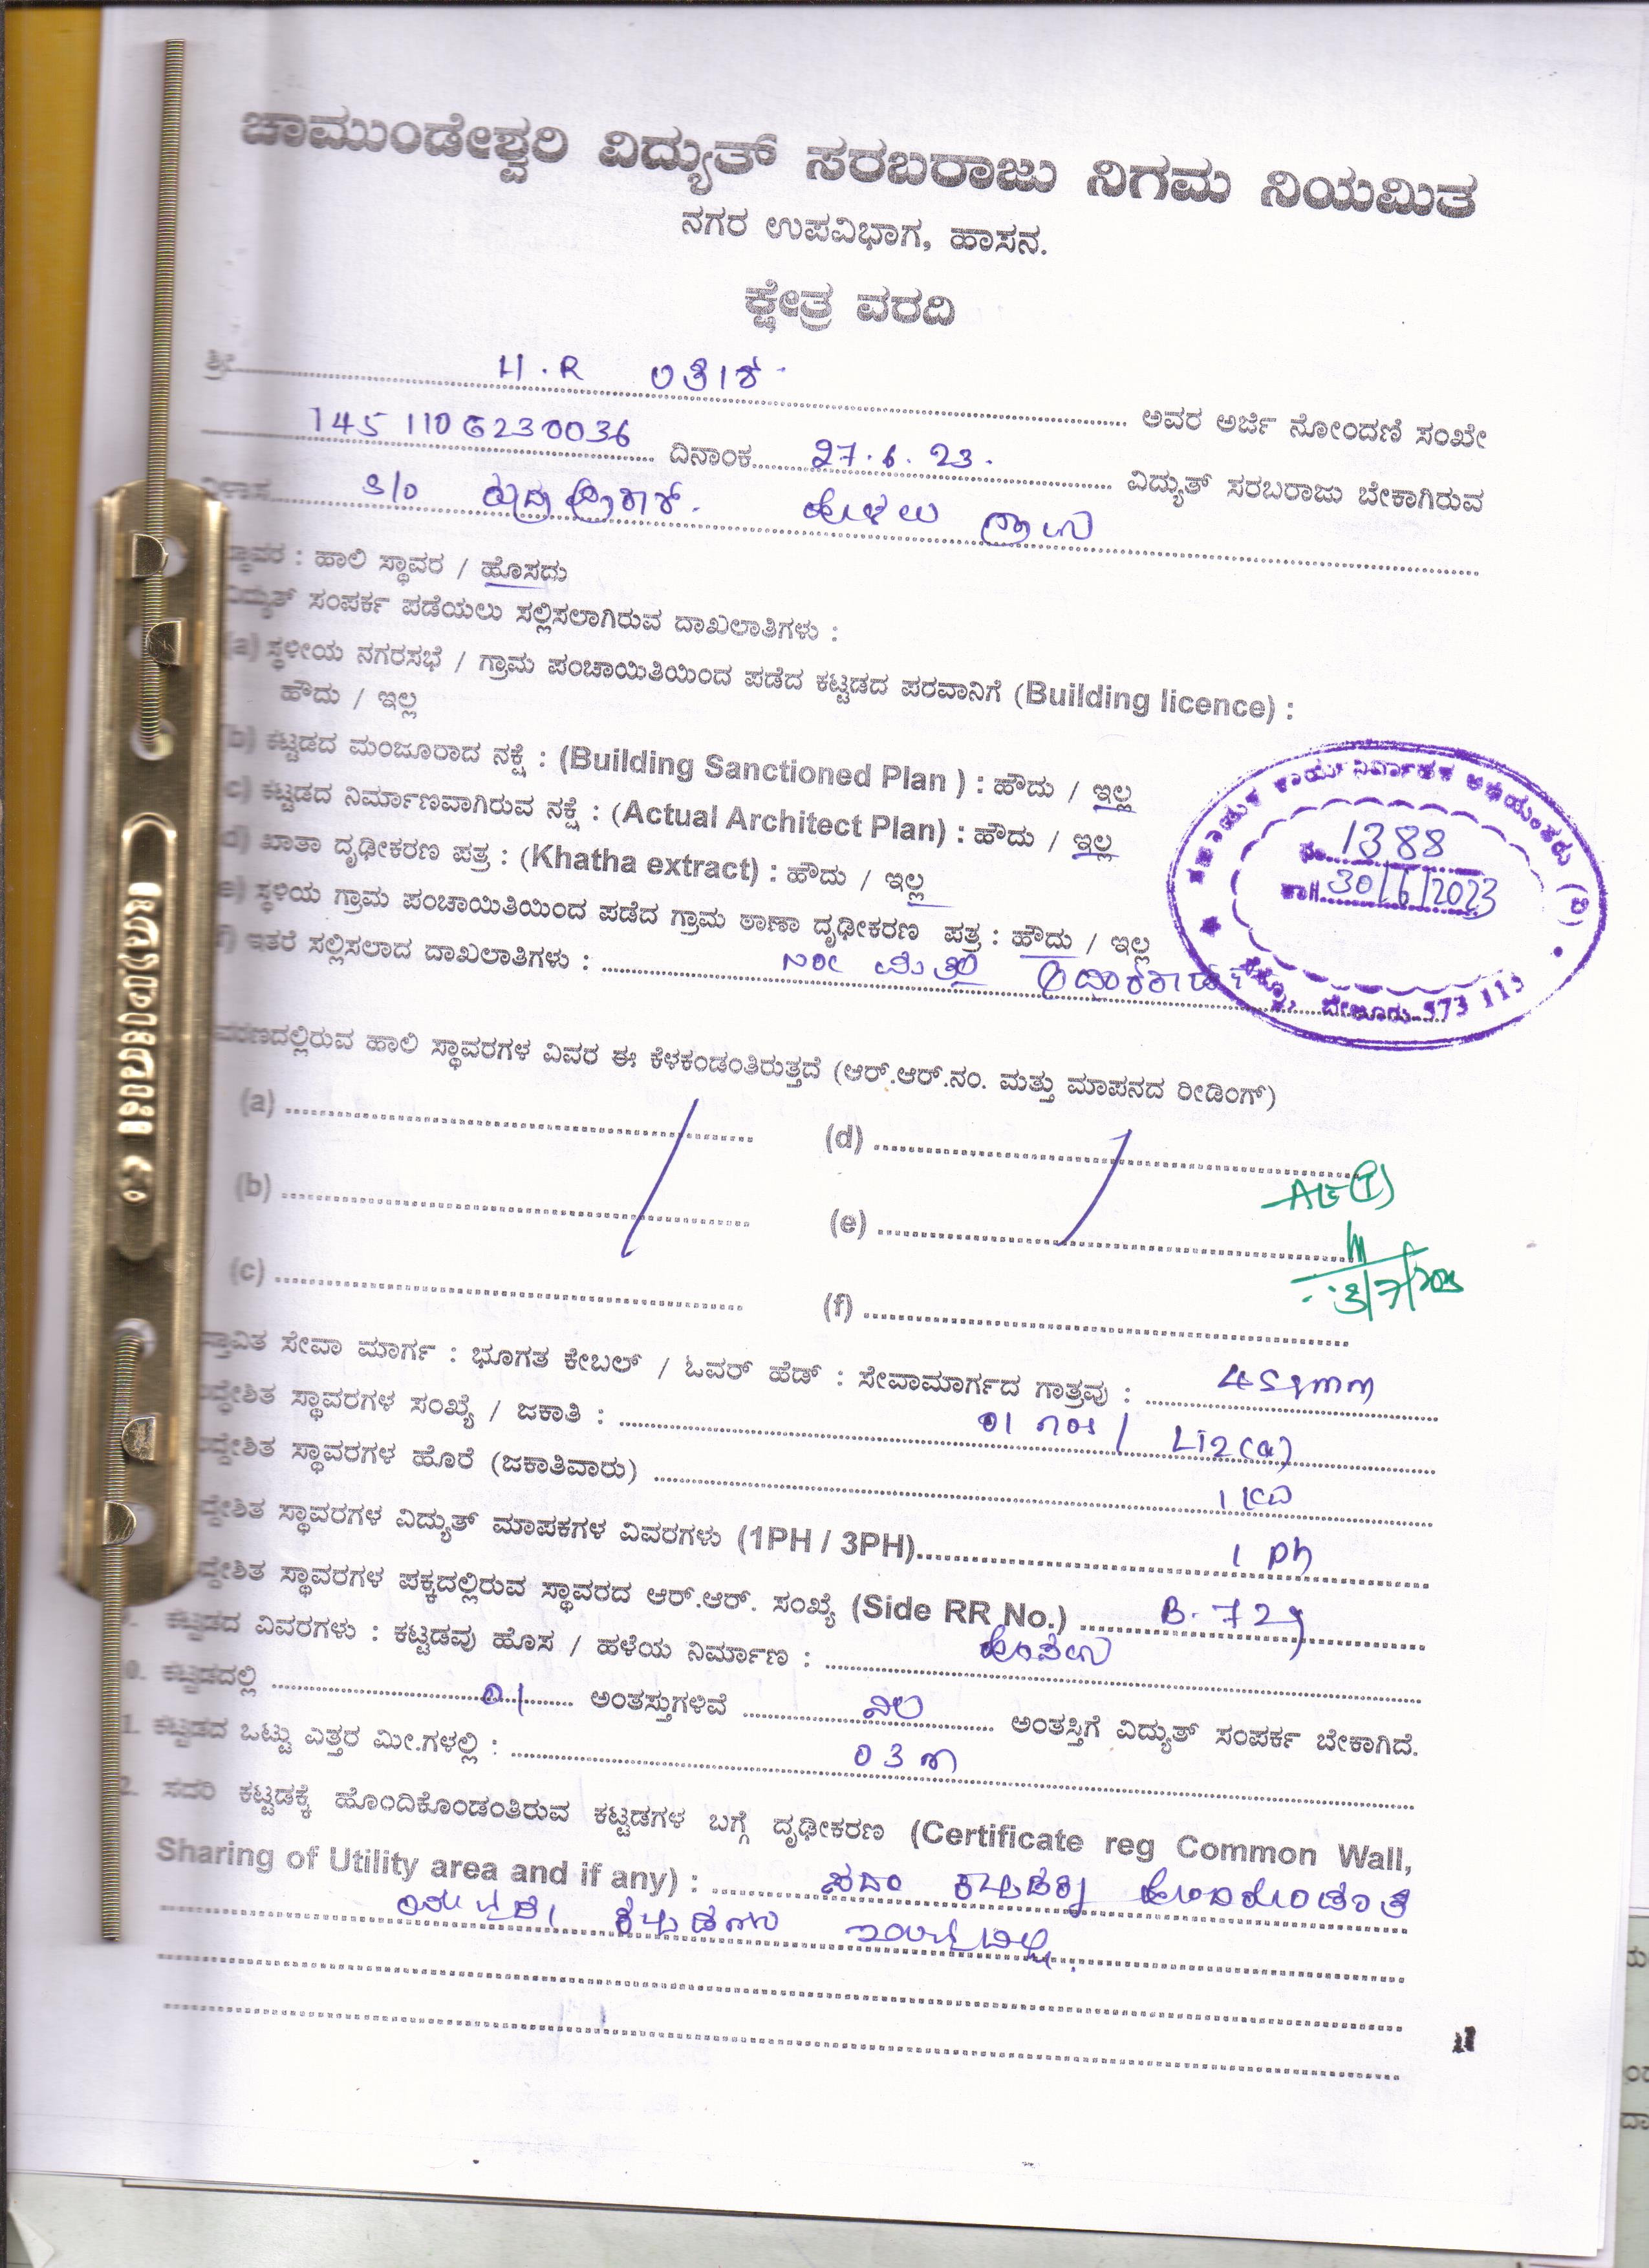 ಚಾಮುಂಡೇಶ್ವರಿ ವಿದ್ಯುತ್ ಸರಬರಾಜು ನಿಗಮ ನಿಯಮಿತ
ನಗರ ಉಪವಿಭಾಗ, ಹಾಸನ.
ಕ್ಷೇತ್ರ ವರದಿ
ಶ್ರೀ H.R ಅವರ ಅರ್ಜಿ ನೋಂದಣಿ ಸಂಖೇ
145 1106230036 ದಿನಾಂಕ 27.6.23. ವಿದ್ಯುತ್ ಸರಬರಾಜು ಬೇಕಾಗಿರುವ
S/o
ಸ್ಥಾವರ : ಹಾಲಿ ಸ್ಥಾವರ / ಹೊಸದು
ವಿದ್ಯುತ್ ಸಂಪರ್ಕ ಪಡೆಯಲು ಸಲ್ಲಿಸಲಾಗಿರುವ ದಾಖಲಾತಿಗಳು :
(a) ಸ್ಥಳೀಯ ನಗರಸಭೆ / ಗ್ರಾಮ ಪಂಚಾಯಿತಿಯಿಂದ ಪಡೆದ ಕಟ್ಟಡದ ಪರವಾನಿಗೆ (Building licence) :
ಹೌದು / ಇಲ್ಲ
(b) ಕಟ್ಟಡದ ಮಂಜೂರಾದ ನಕ್ಷೆ : (Building Sanctioned Plan ) : ಹೌದು / ಇಲ್ಲ
(c) ಕಟ್ಟಡದ ನಿರ್ಮಾಣವಾಗಿರುವ ನಕ್ಷೆ : (Actual Architect Plan) : ಹೌದು / ಇಲ್ಲ
(d) ಖಾತಾ ದೃಢೀಕರಣ ಪತ್ರ : (Khatha extract) : ಹೌದು / ಇಲ್ಲ
(e) ಸ್ಥಳಿಯ ಗ್ರಾಮ ಪಂಚಾಯಿತಿಯಿಂದ ಪಡೆದ ಗ್ರಾಮ ಠಾಣಾ ದೃಢೀಕರಣ ಪತ್ರ : ಹೌದು / ಇಲ್ಲ
(f) ಇತರೆ ಸಲ್ಲಿಸಲಾದ ದಾಖಲಾತಿಗಳು :
ಸಹಾಯಕ ಕಾರ್ಯನಿರ್ವಾಹಕ ಅಭಿಯಂತರು (ವಿ)
ನಂ. 1388
ದಿ॥ 30/6/2023
ಬೇಲೂರು-573 115
ಆವರಣದಲ್ಲಿರುವ ಹಾಲಿ ಸ್ಥಾವರಗಳ ವಿವರ ಈ ಕೆಳಕಂಡಂತಿರುತ್ತದೆ (ಆರ್.ಆರ್.ನಂ. ಮತ್ತು ಮಾಪನದ ರೀಡಿಂಗ್)
(a) (d)
(b) (e)
AE(T)
(c) (f)
3/7/2023
ಸೇವಾ ಮಾರ್ಗ : ಭೂಗತ ಕೇಬಲ್ / ಓವರ್ ಹೆಡ್ : ಸೇವಾಮಾರ್ಗದ ಗಾತ್ರವು : 4Sqmm
ಉದ್ದೇಶಿತ ಸ್ಥಾವರಗಳ ಸಂಖ್ಯೆ / ಜಕಾತಿ : 01 nos / LT2(a)
ಉದ್ದೇಶಿತ ಸ್ಥಾವರಗಳ ಹೊರೆ (ಜಕಾತಿವಾರು) 1 KW
ಉದ್ದೇಶಿತ ಸ್ಥಾವರಗಳ ವಿದ್ಯುತ್ ಮಾಪಕಗಳ ವಿವರಗಳು (1PH / 3PH) 1 Ph
ಉದ್ದೇಶಿತ ಸ್ಥಾವರಗಳ ಪಕ್ಕದಲ್ಲಿರುವ ಸ್ಥಾವರದ ಆರ್.ಆರ್. ಸಂಖ್ಯೆ (Side RR No.) B-729
9. ಕಟ್ಟಡದ ವಿವರಗಳು : ಕಟ್ಟಡವು ಹೊಸ / ಹಳೆಯ ನಿರ್ಮಾಣ :
10. ಕಟ್ಟಡದಲ್ಲಿ 01 ಅಂತಸ್ತುಗಳಿವೆ ನೆಲ ಅಂತಸ್ತಿಗೆ ವಿದ್ಯುತ್ ಸಂಪರ್ಕ ಬೇಕಾಗಿದೆ.
11. ಕಟ್ಟಡದ ಒಟ್ಟು ಎತ್ತರ ಮೀ.ಗಳಲ್ಲಿ : 03 m
12. ಸದರಿ ಕಟ್ಟಡಕ್ಕೆ ಹೊಂದಿಕೊಂಡಂತಿರುವ ಕಟ್ಟಡಗಳ ಬಗ್ಗೆ ದೃಢೀಕರಣ (Certificate reg Common Wall,
Sharing of Utility area and if any) : ಸದರಿ ಕಟ್ಟಡಕ್ಕೆ ಹೊಂದಿಕೊಂಡಂತೆ
ಕಟ್ಟಡಗಳು ಇರುವುದಿಲ್ಲ.